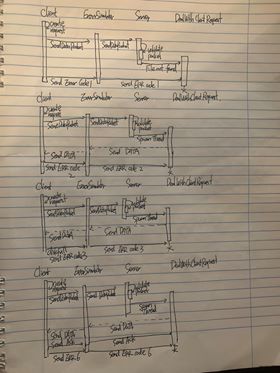 Client ErrorSimulator Server DealWithClientRequest
create
request
SendDataPacket
SendDataPacket
validate
packet
thread
Send Error Code 1
Send ERR code 1
Client ErrorSimulator Server DealWithClientRequest
create
request
SendDataPacket
SendDataPacket
validate
packet
spawn thread
Send DATA
Send DATA
Send ERR code
2
Send ERR code 2
Client ErrorSimulator Server DealWithClientRequest
create
request
SendDataPacket
SendDataPacket
validate
packet
spawn thread
Send DATA
Send DATA
Send ERR code 3
Send ERR code 3
Client ErrorSimulator Server DealWithClientRequest
create
request
SendDataPacket
Send DataPacket
validate
packet
spawn
thread
Send DATA
Send DATA
Send ACK
Send ACK
Send ERR 6
Send ERR code 6